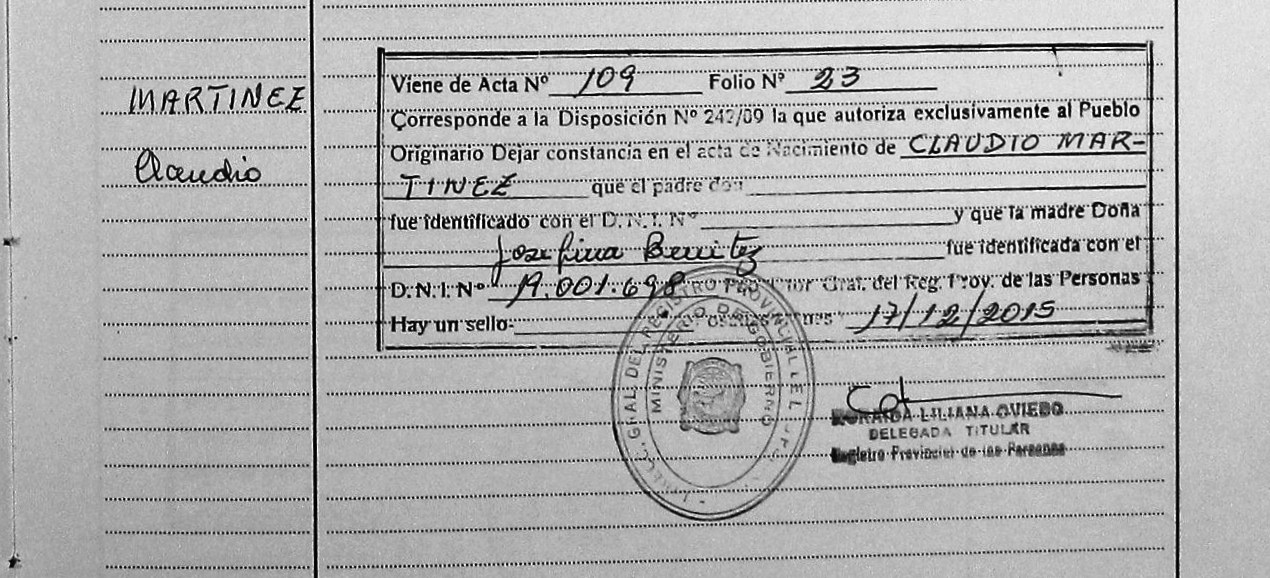 MARTINEZ
Claudio
Viene de Acta Nº 109 Folio Nº 23
Corresponde a la Disposición Nº 242/09 la que autoriza exclusivamente al Pueblo
Originario Dejar constancia en el acta de Nacimiento de CLAUDIO MAR-
TINEZ que el padre don
fue identificado con el D.N.I. Nº y que la madre Doña
Josefina Benitez fue identificada con el
D.N.I. Nº 19.001.698 Gral. del Reg. Prov. de las Personas
Hay un sello- 17/12/2015
GRAL. DEL REGISTRO PROVINCIAL DE
MINISTERIO DE GOBIERNO
LILIANA OVIEDO
DELEGADA TITULAR
Registro Provincial de las Personas